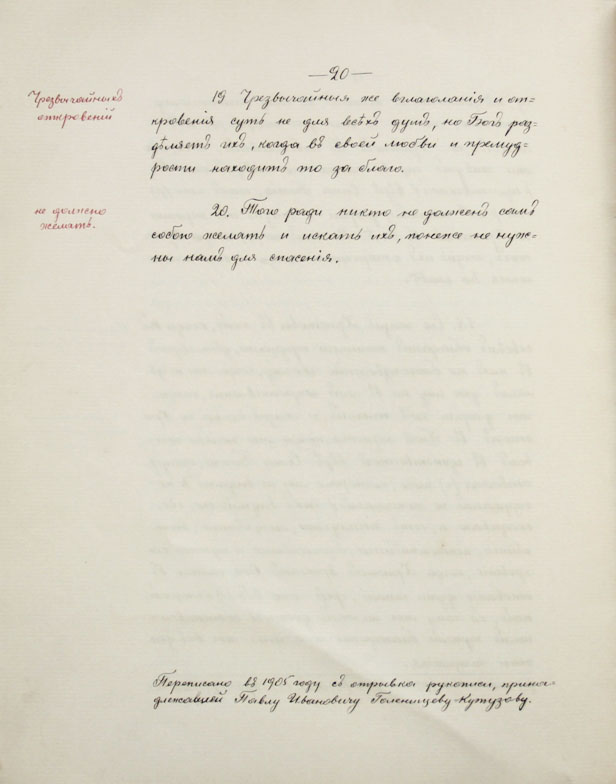 —20—
Чрезвычайныхъ
откровенiй
19 Чрезвычайныя же вглаголанiя и от=
кровенiя суть не для всѣхъ душъ, но Богъ раз=
дѣляетъ ихъ, когда въ своей любви и премуд=
рости находитъ то за благо.
не должно
желать.
20. Того ради никто не долженъ самъ
собою желать и искать ихъ, понеже не нуж=
ны намъ для спасенiя.
Переписано въ 1905 году съ отрывка рукописи, прина=
длежавшей Павлу Ивановичу Голенищеву-Кутузову.